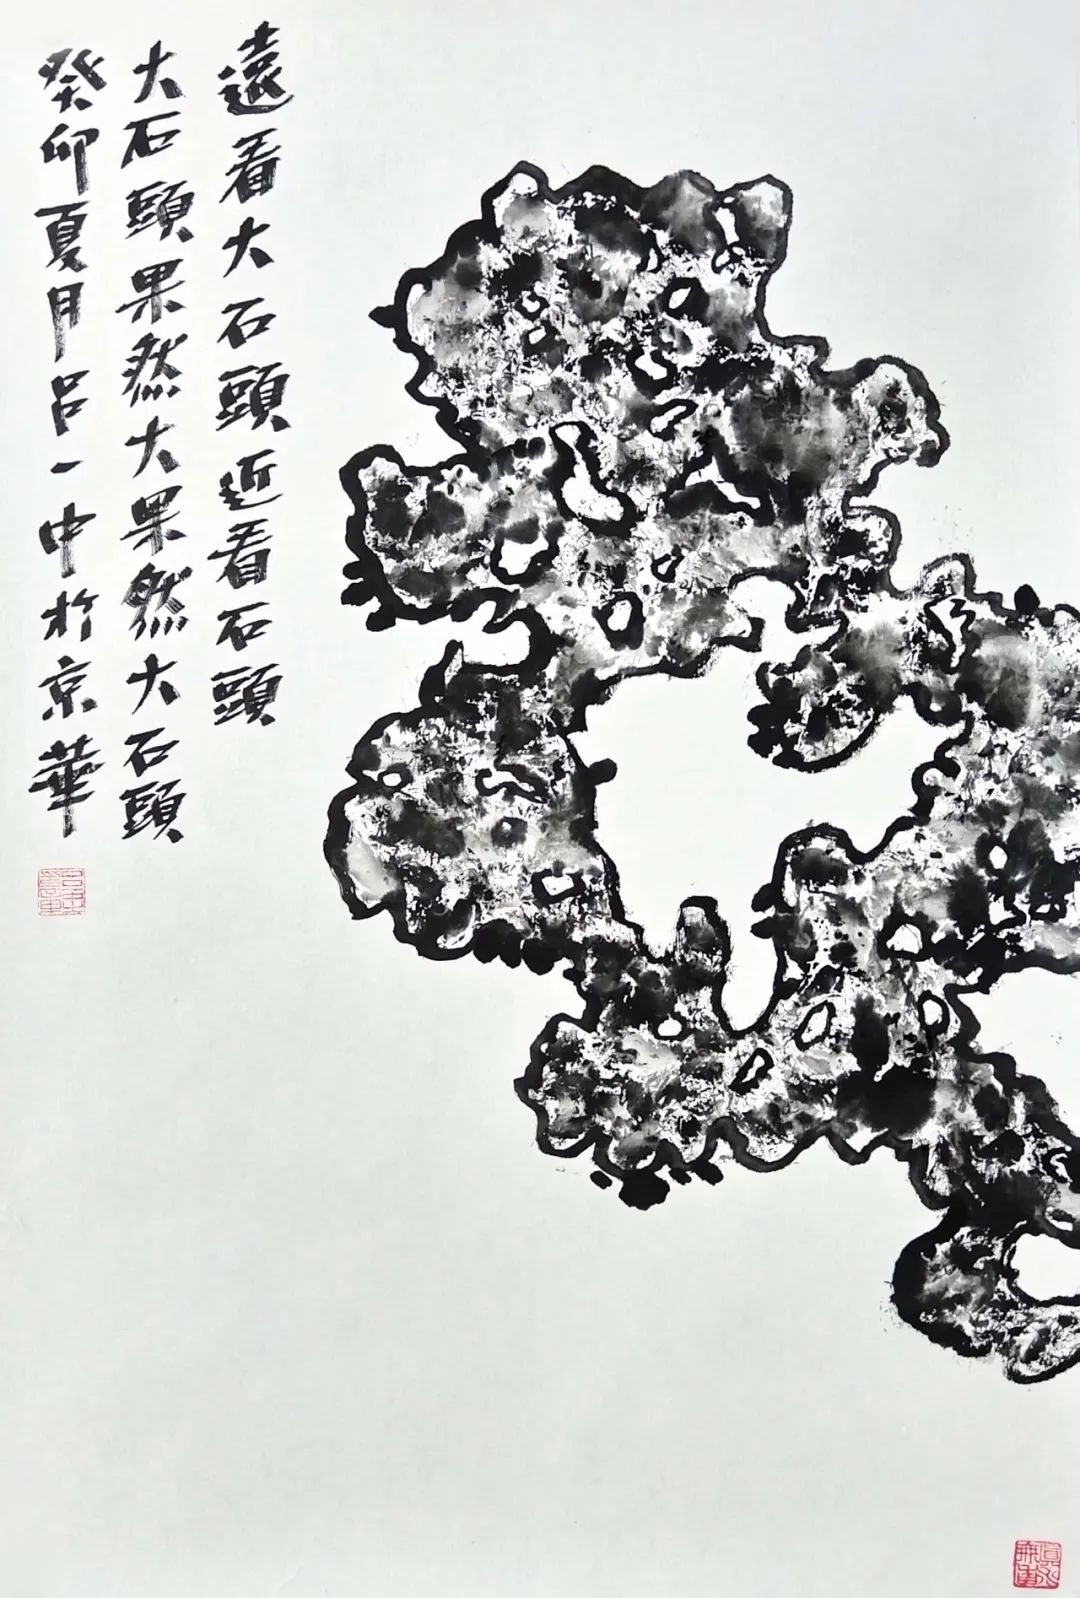 遠看大石頭近看石頭
大石頭果然大果然大石頭
癸卯夏月吕一中於京華